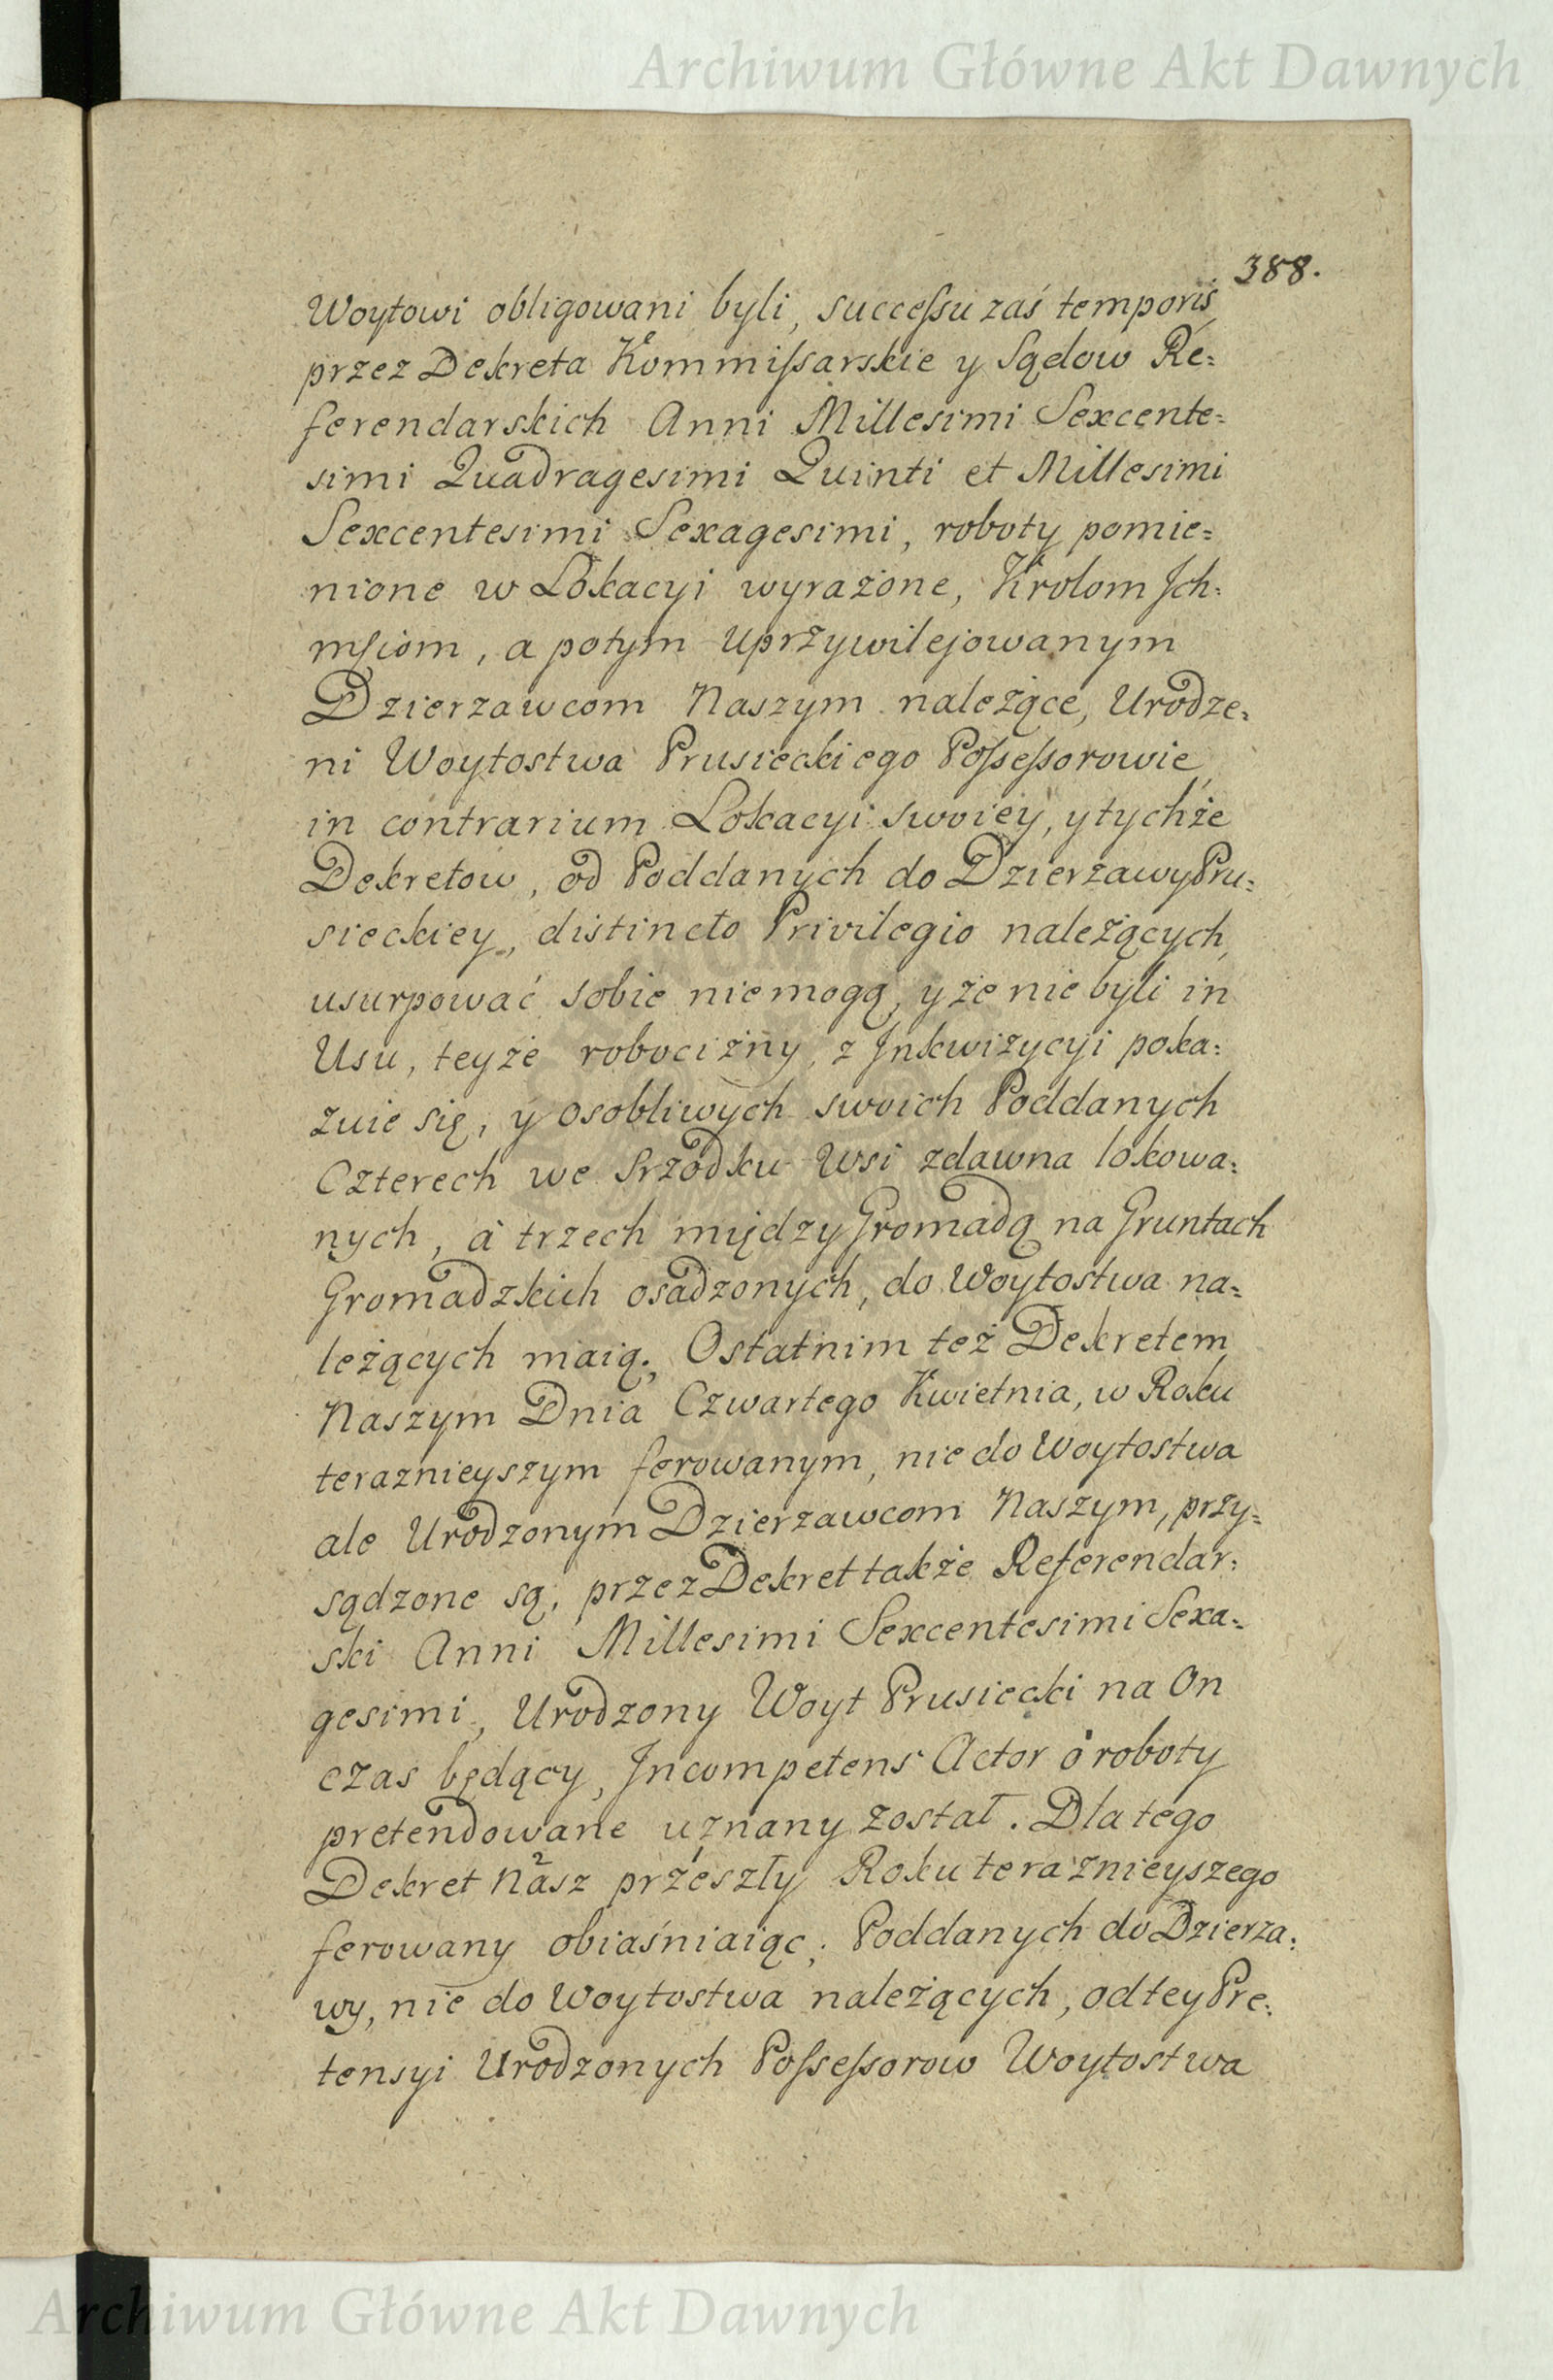 Archiwum Główne Akt Dawnych
388.
Woytowi obligowani byli, succeſsu zaś temporis,
przez Dekreta Kommiſsarskie y Sądow Re=
ferendarskich Anni Millesimi Sexcente=
simi Quadragesimi Quinti et Millesimi
Sexcentesimi Sexagesimi, roboty pomie=
nione w Lokacyi wyrażone, Krolom Ich=
mſciom, a potym uprzywilejowanym
Dzierzawcom Naszym należące, Urodze=
ni Woytostwa Prusieckiego Poſseſsorowie,
in contrarium Lokacyi swoiey, y tychże
Dekretow, od Poddanych do Dzierzawy Pru=
sieckiey, distincto Privilegio należących,
usurpować sobie nie mogą, y że nie byli in
Usu, teyże robocizny, z Inkwizycyi poka=
zuie się, y osobliwych swoich Poddanych
Czterech we Srzodku Wsi zdawna lokowa=
nych, a trzech między Gromadą na Gruntach
Gromadzkich osadzonych, do Woytostwa na=
leżących maią. Ostatnim też Dekretem
Naszym Dnia Czwartego Kwietnia, w Roku
teraznieyszym ferowanym, nie do Woytostwa
ale Urodzonym Dzierzawcom Naszym, przy=
sądzone są, przez Dekret także Referendar=
ski Anni Millesimi Sexcentesimi Sexa=
gesimi, Urodzony Woyt Prusiecki na On
czas będący, Incompetens Actor o roboty
pretendowane uznany został. Dla tego
Dekret Nasz przeszły Roku teraznieyszego
ferowany obiaśniaiąc, Poddanych do Dzierza=
wy, nie do Woytostwa należących, od tey Pre=
tensyi Urodzonych Poſseſsorow Woytostwa
Archiwum Główne Akt Dawnych